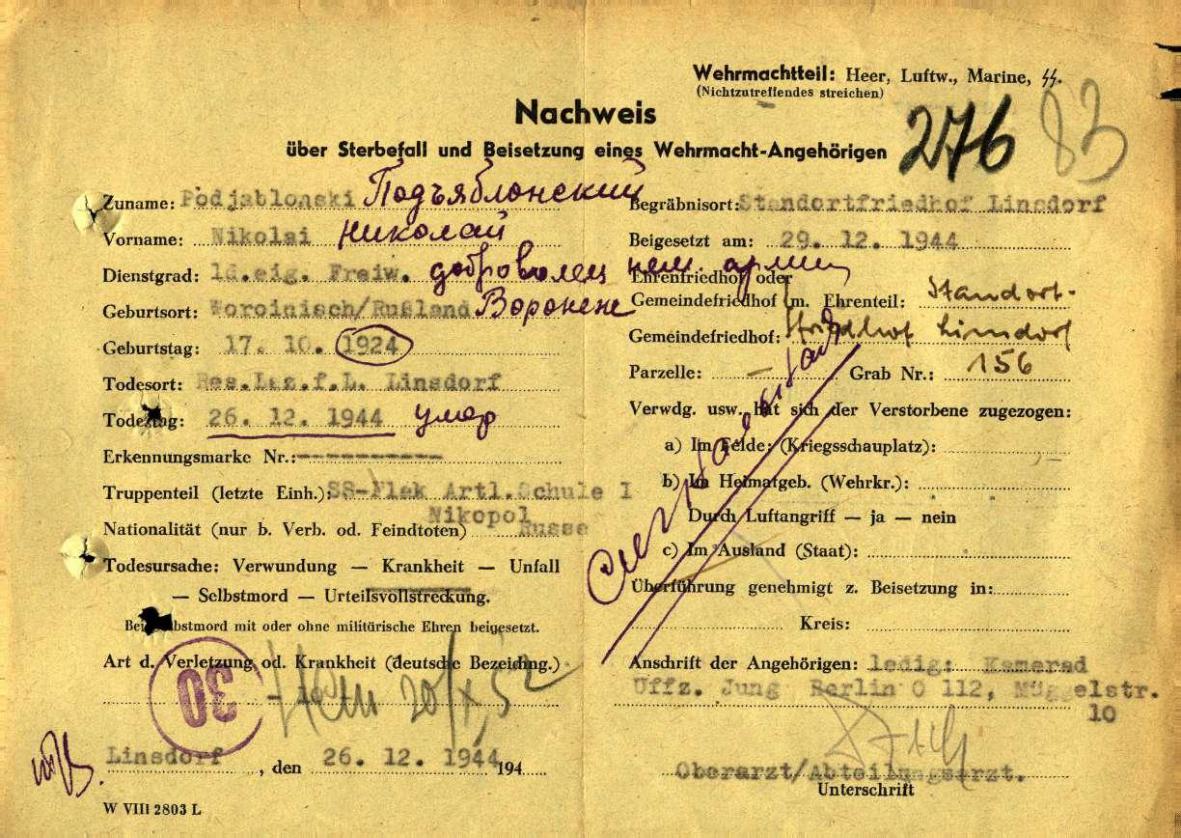 Wehrmachtteil: Heer, Luftw., Marine, ᛋᛋ.
(Nichtzutreffendes streichen)
Nachweis
276 83
über Sterbefall und Beisetzung eines Wehrmacht-Angehörigen
Zuname: Podjablonski Подъяблонский
Vorname: Nikolai Николай
Dienstgrad: ld.eig. Freiw. доброволец нем. армии
Geburtsort: Woroinisch/Rußland Воронеже
Geburtstag: 17. 10. 1924
Todesort: Res.Laz.f.L. Linsdorf
Todestag: 26. 12. 1944 умер
Erkennungsmarke Nr.:
Truppenteil (letzte Einh.): SS-Flak Artl.Schule I
Nikopol
Nationalität (nur b. Verb. od. Feindtoten) Russe
Todesursache: Verwundung — Krankheit — Unfall
— Selbstmord — Urteilsvollstreckung.
Bei Selbstmord mit oder ohne militärische Ehren beigesetzt.
Art d. Verletzung od. Krankheit (deutsche Bezeichng.)
30
- 10 -
Linsdorf, den 26. 12. 1944 194
W VIII 2803 L
Begräbnisort: Standortfriedhof Linsdorf
Beigesetzt am: 29. 12. 1944
Ehrenfriedhof oder
Gemeindefriedhof m. Ehrenteil: Standort-
Gemeindefriedhof: friedhof Linsdorf
Parzelle: — Grab Nr.: 156
Verwdg. usw. hat sich der Verstorbene zugezogen:
a) Im Felde: (Kriegsschauplatz):
b) Im Heimatgeb. (Wehrkr.):
Durch Luftangriff — ja — nein
c) Im Ausland (Staat):
Überführung genehmigt z. Beisetzung in:
Kreis:
Anschrift der Angehörigen: ledig: Kamerad
Uffz. Jung Berlin O 112, Müggelstr.
10
Oberarzt/Abteilungsarzt.
Unterschrift